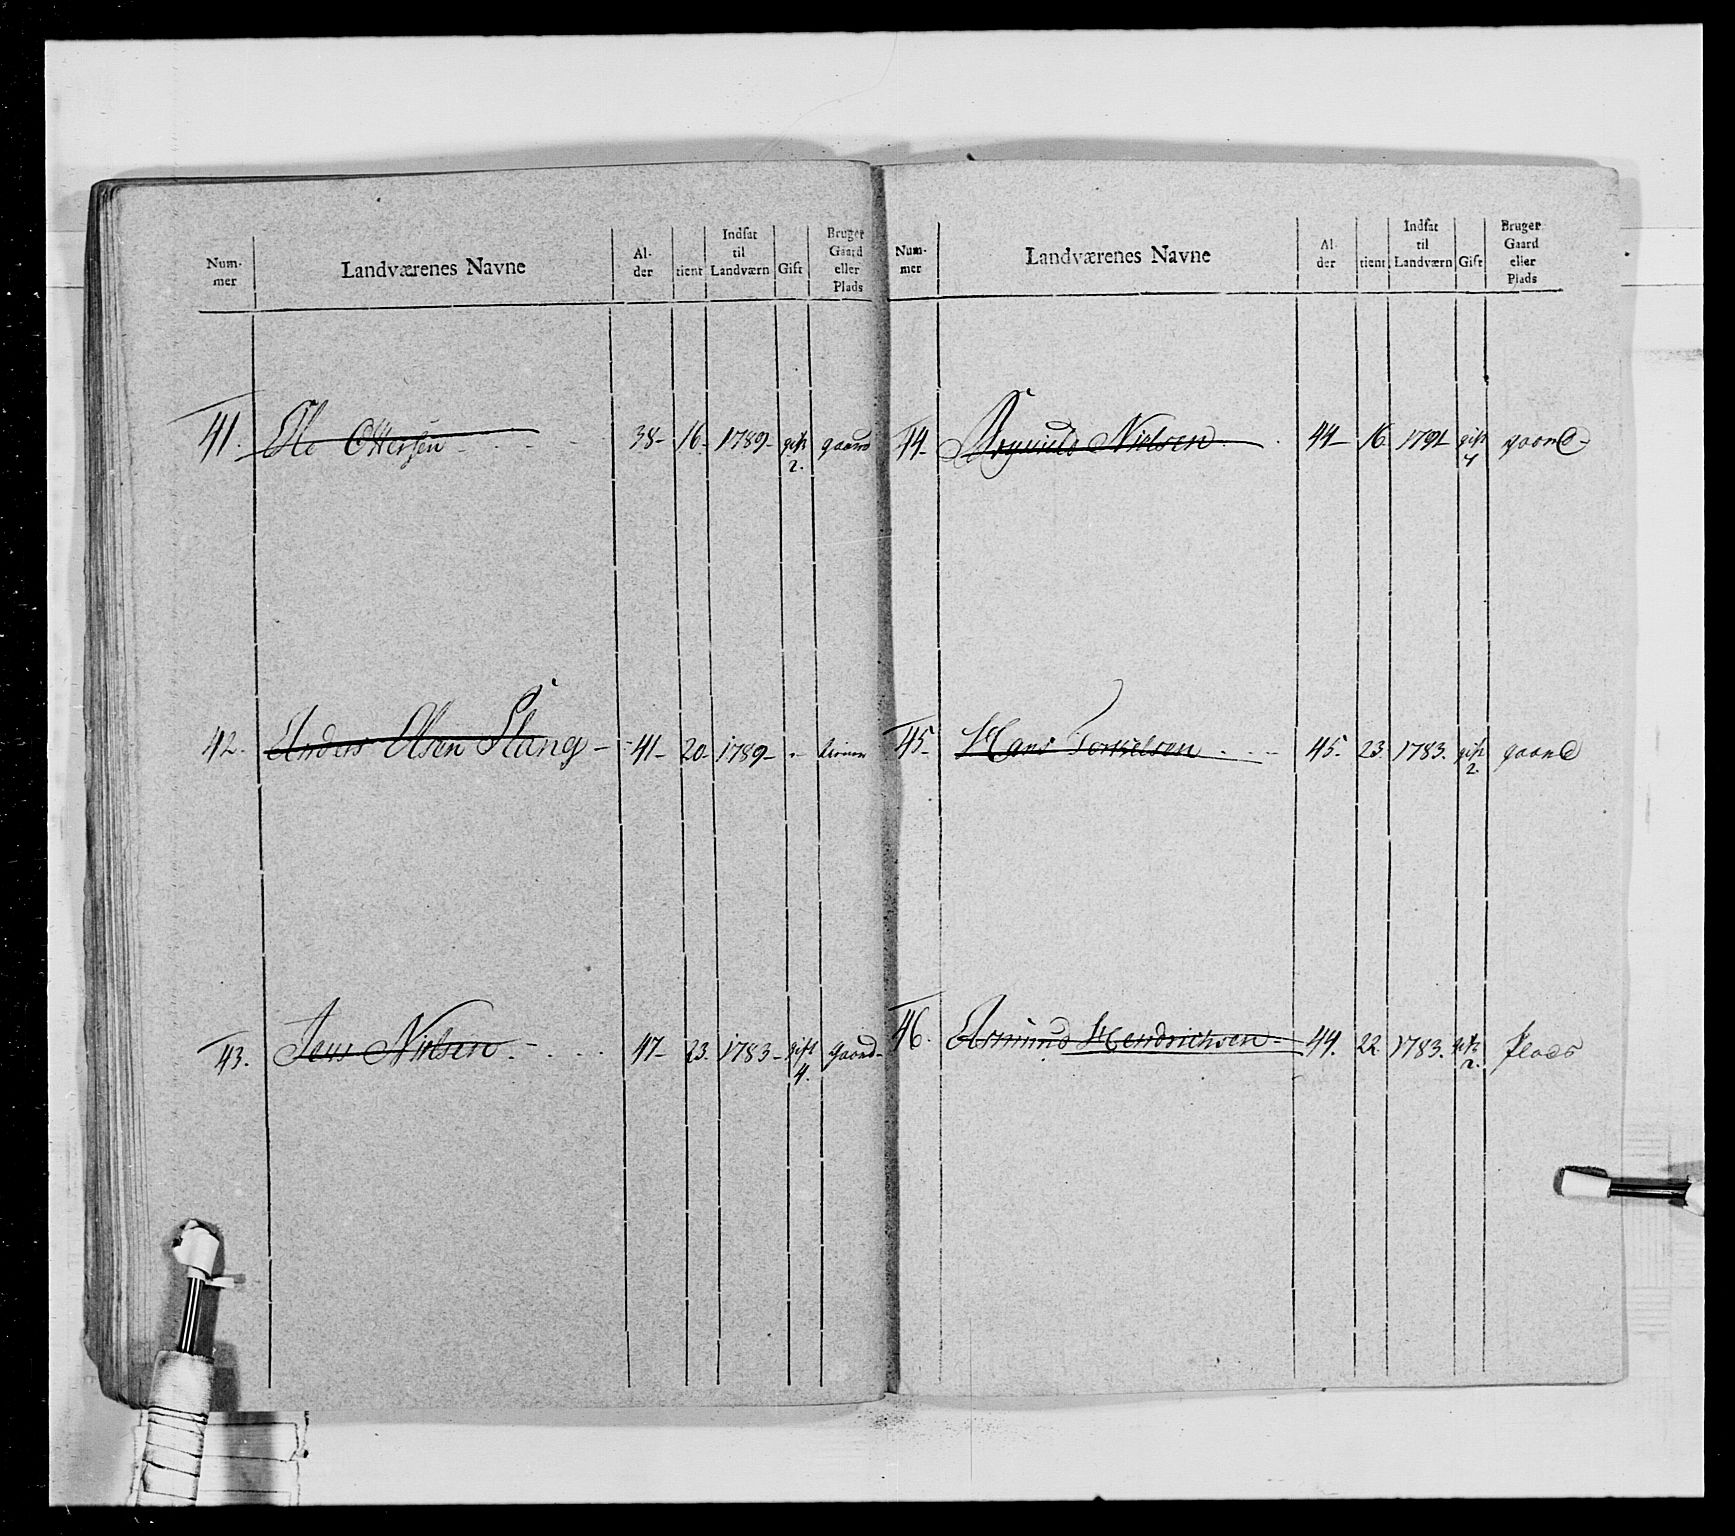 Num-
mer
Landværenes Navne
Al-
der
tient
Indsat
til
Landværn
Gift
Bruger
Gaard
eller
Plads
41. Ole Ottersen 38- 16- 1789- gift 2. gaard
42. Anders Olsen Stang - 41- 20- 1789- -
43. Jens Nielsen 47- 23. 1783- gift 4. Gaard-
Num-
mer
Landværenes Navne
Al-
der
tient
Indsat
til
Landværn
Gift
Bruger
Gaard
eller
Plads
44- Nielsen 44- 16 1791 gift 4 gaard-
45- Hans Torkelsen 45- 23. 1783. gift 2. gaard
46. Asmund Hendrichsen 44. 22. 1783. gift 2. Plads